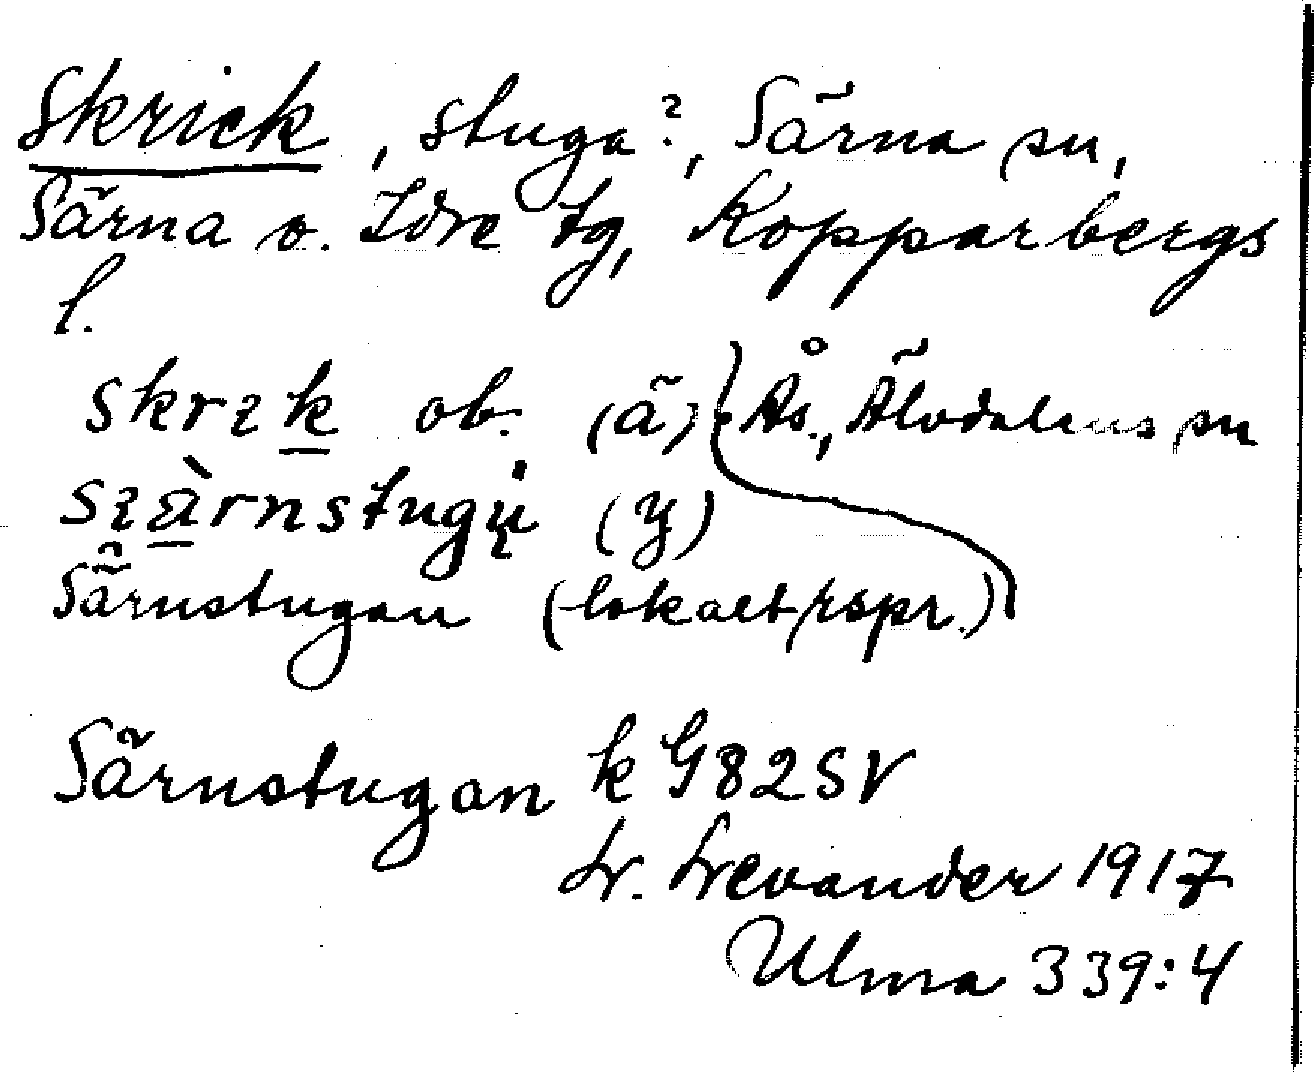 Skrick, stuga?, Särna sn,
Särna o. Idre tg, Kopparbergs
l.
skrɪk ob. (ä) Ås., Älvdalens sn
sɪärnstugų (y)
Särnstugan (lokalt rspr.)
Särnstugan k G82SV
L. Levander 1917
Ulma 339:4